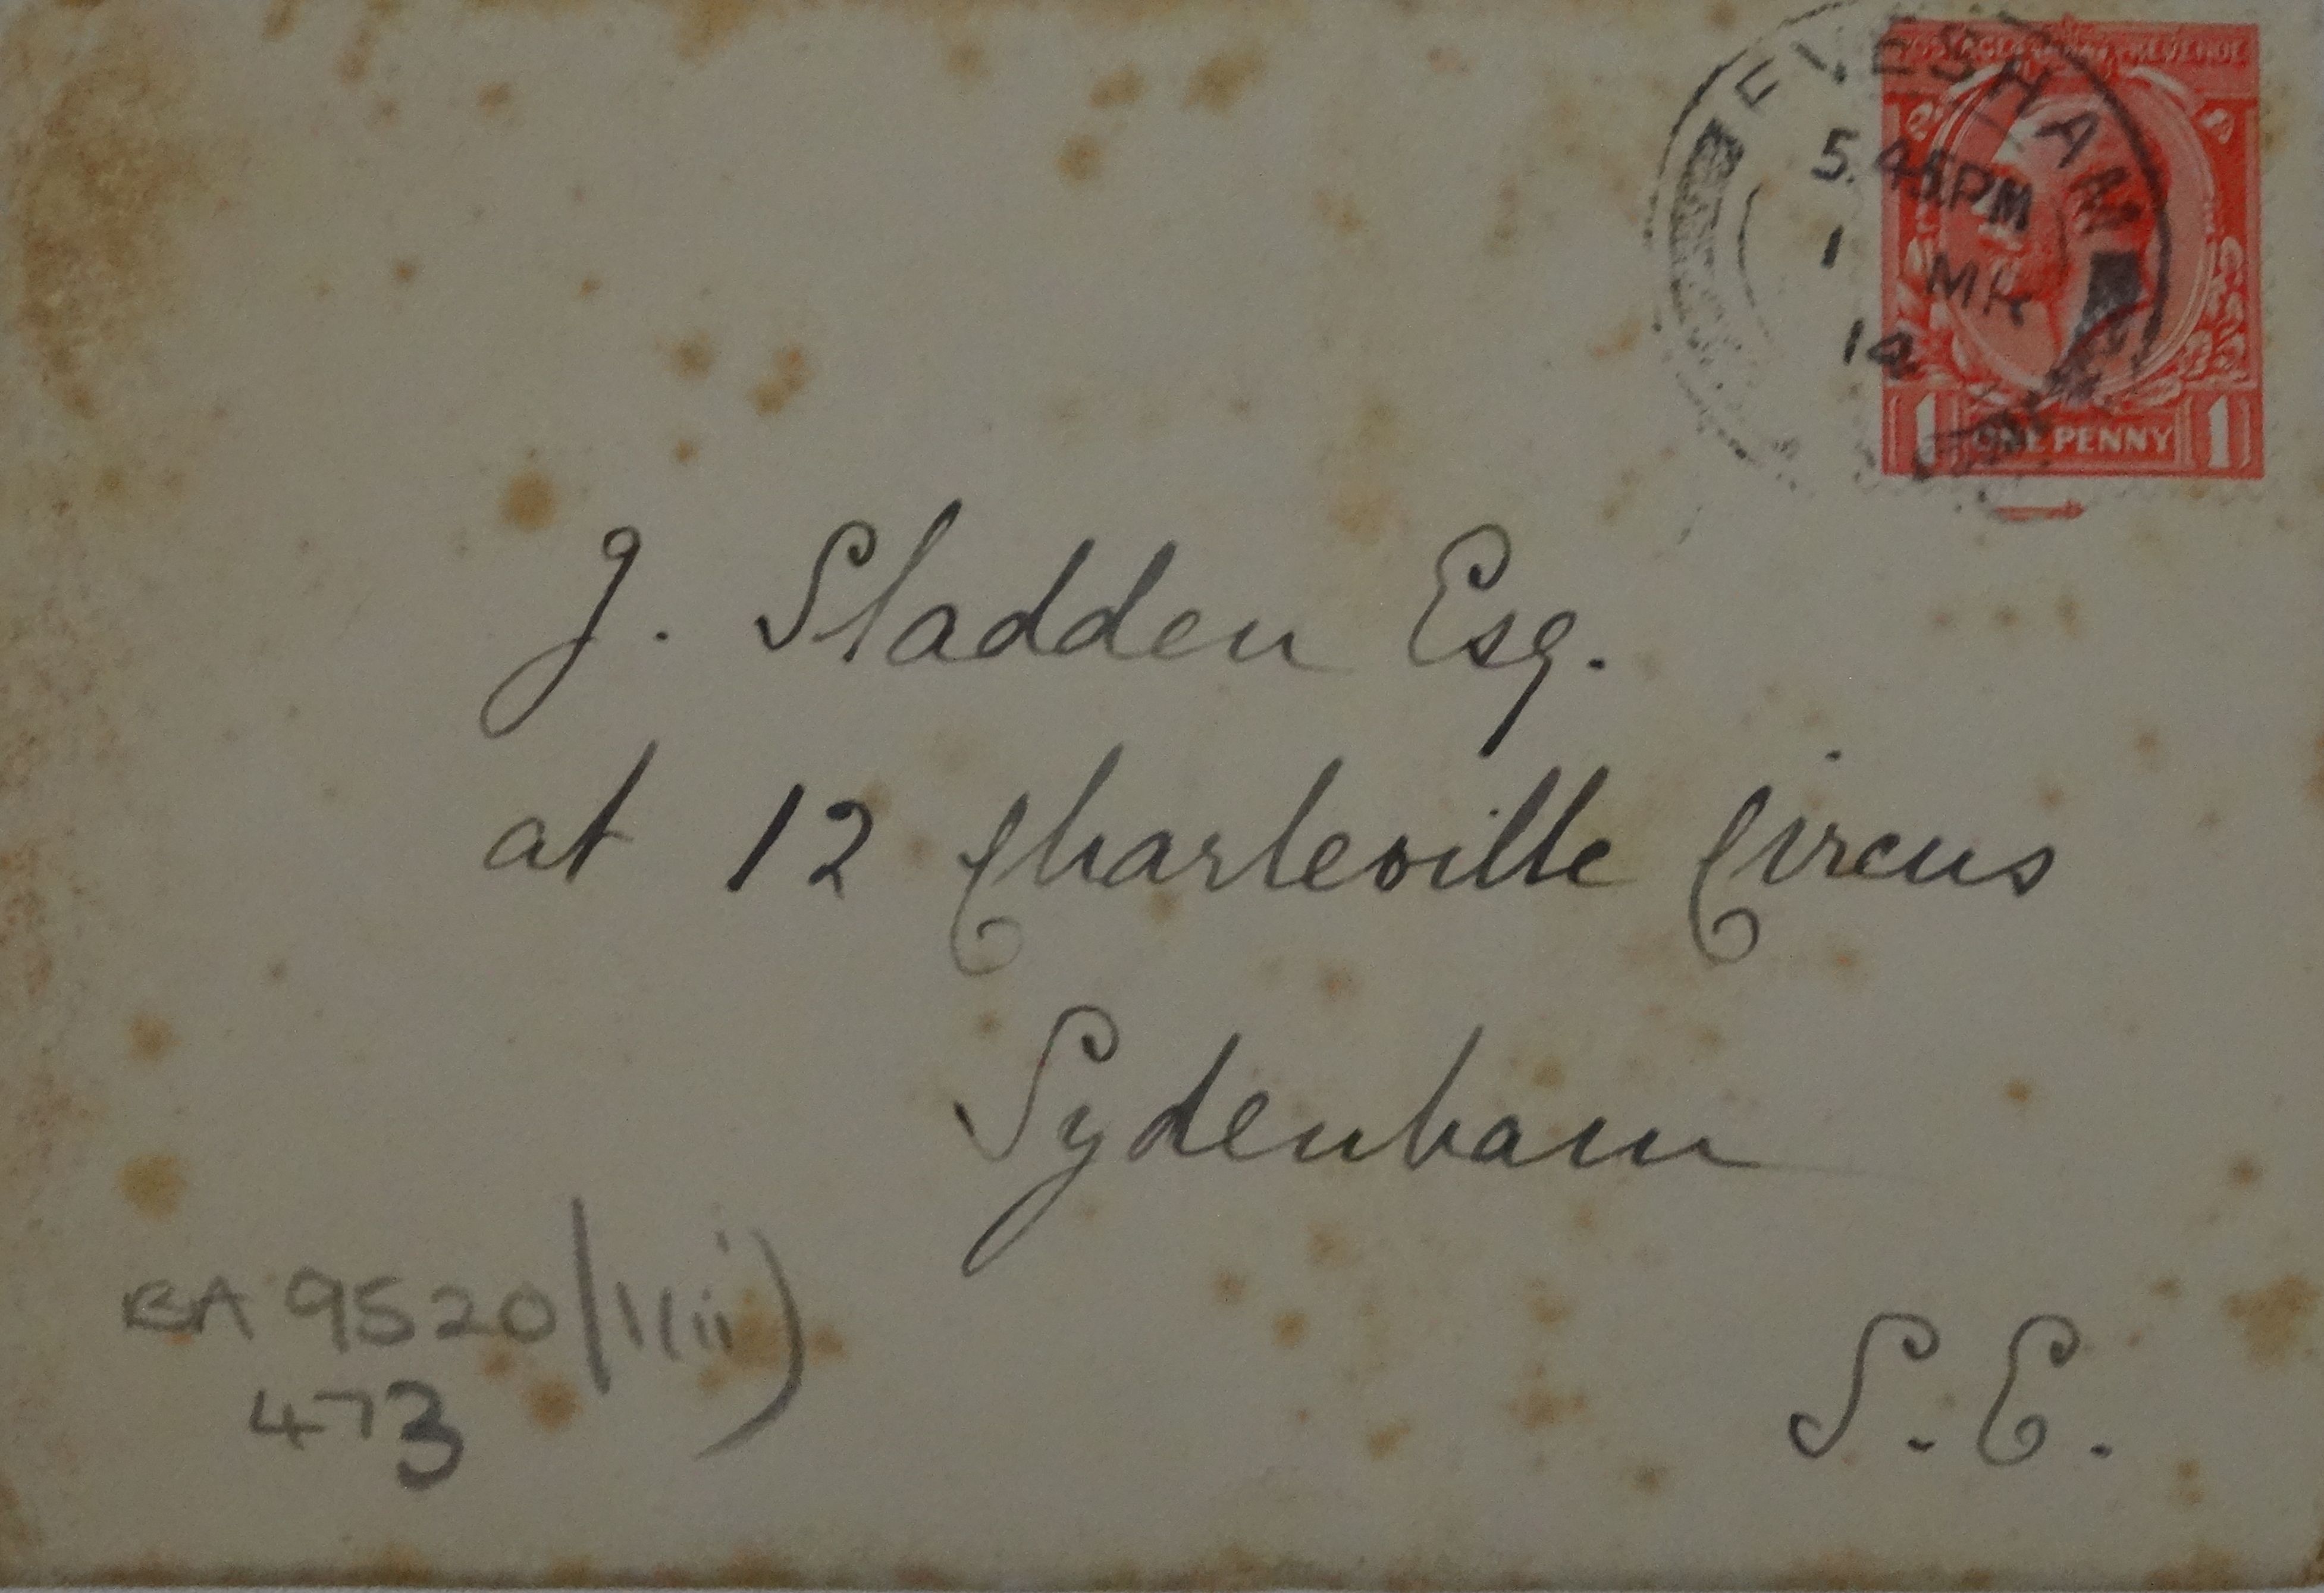 POSTAGE REVENUE
EVESHAM
5.45PM
1 MR
14
1 ONE PENNY 1
J. Sladden Esq.
at 12 Charleville Circus
Sydenham
S.E.
BA 9520/1(ii)
473